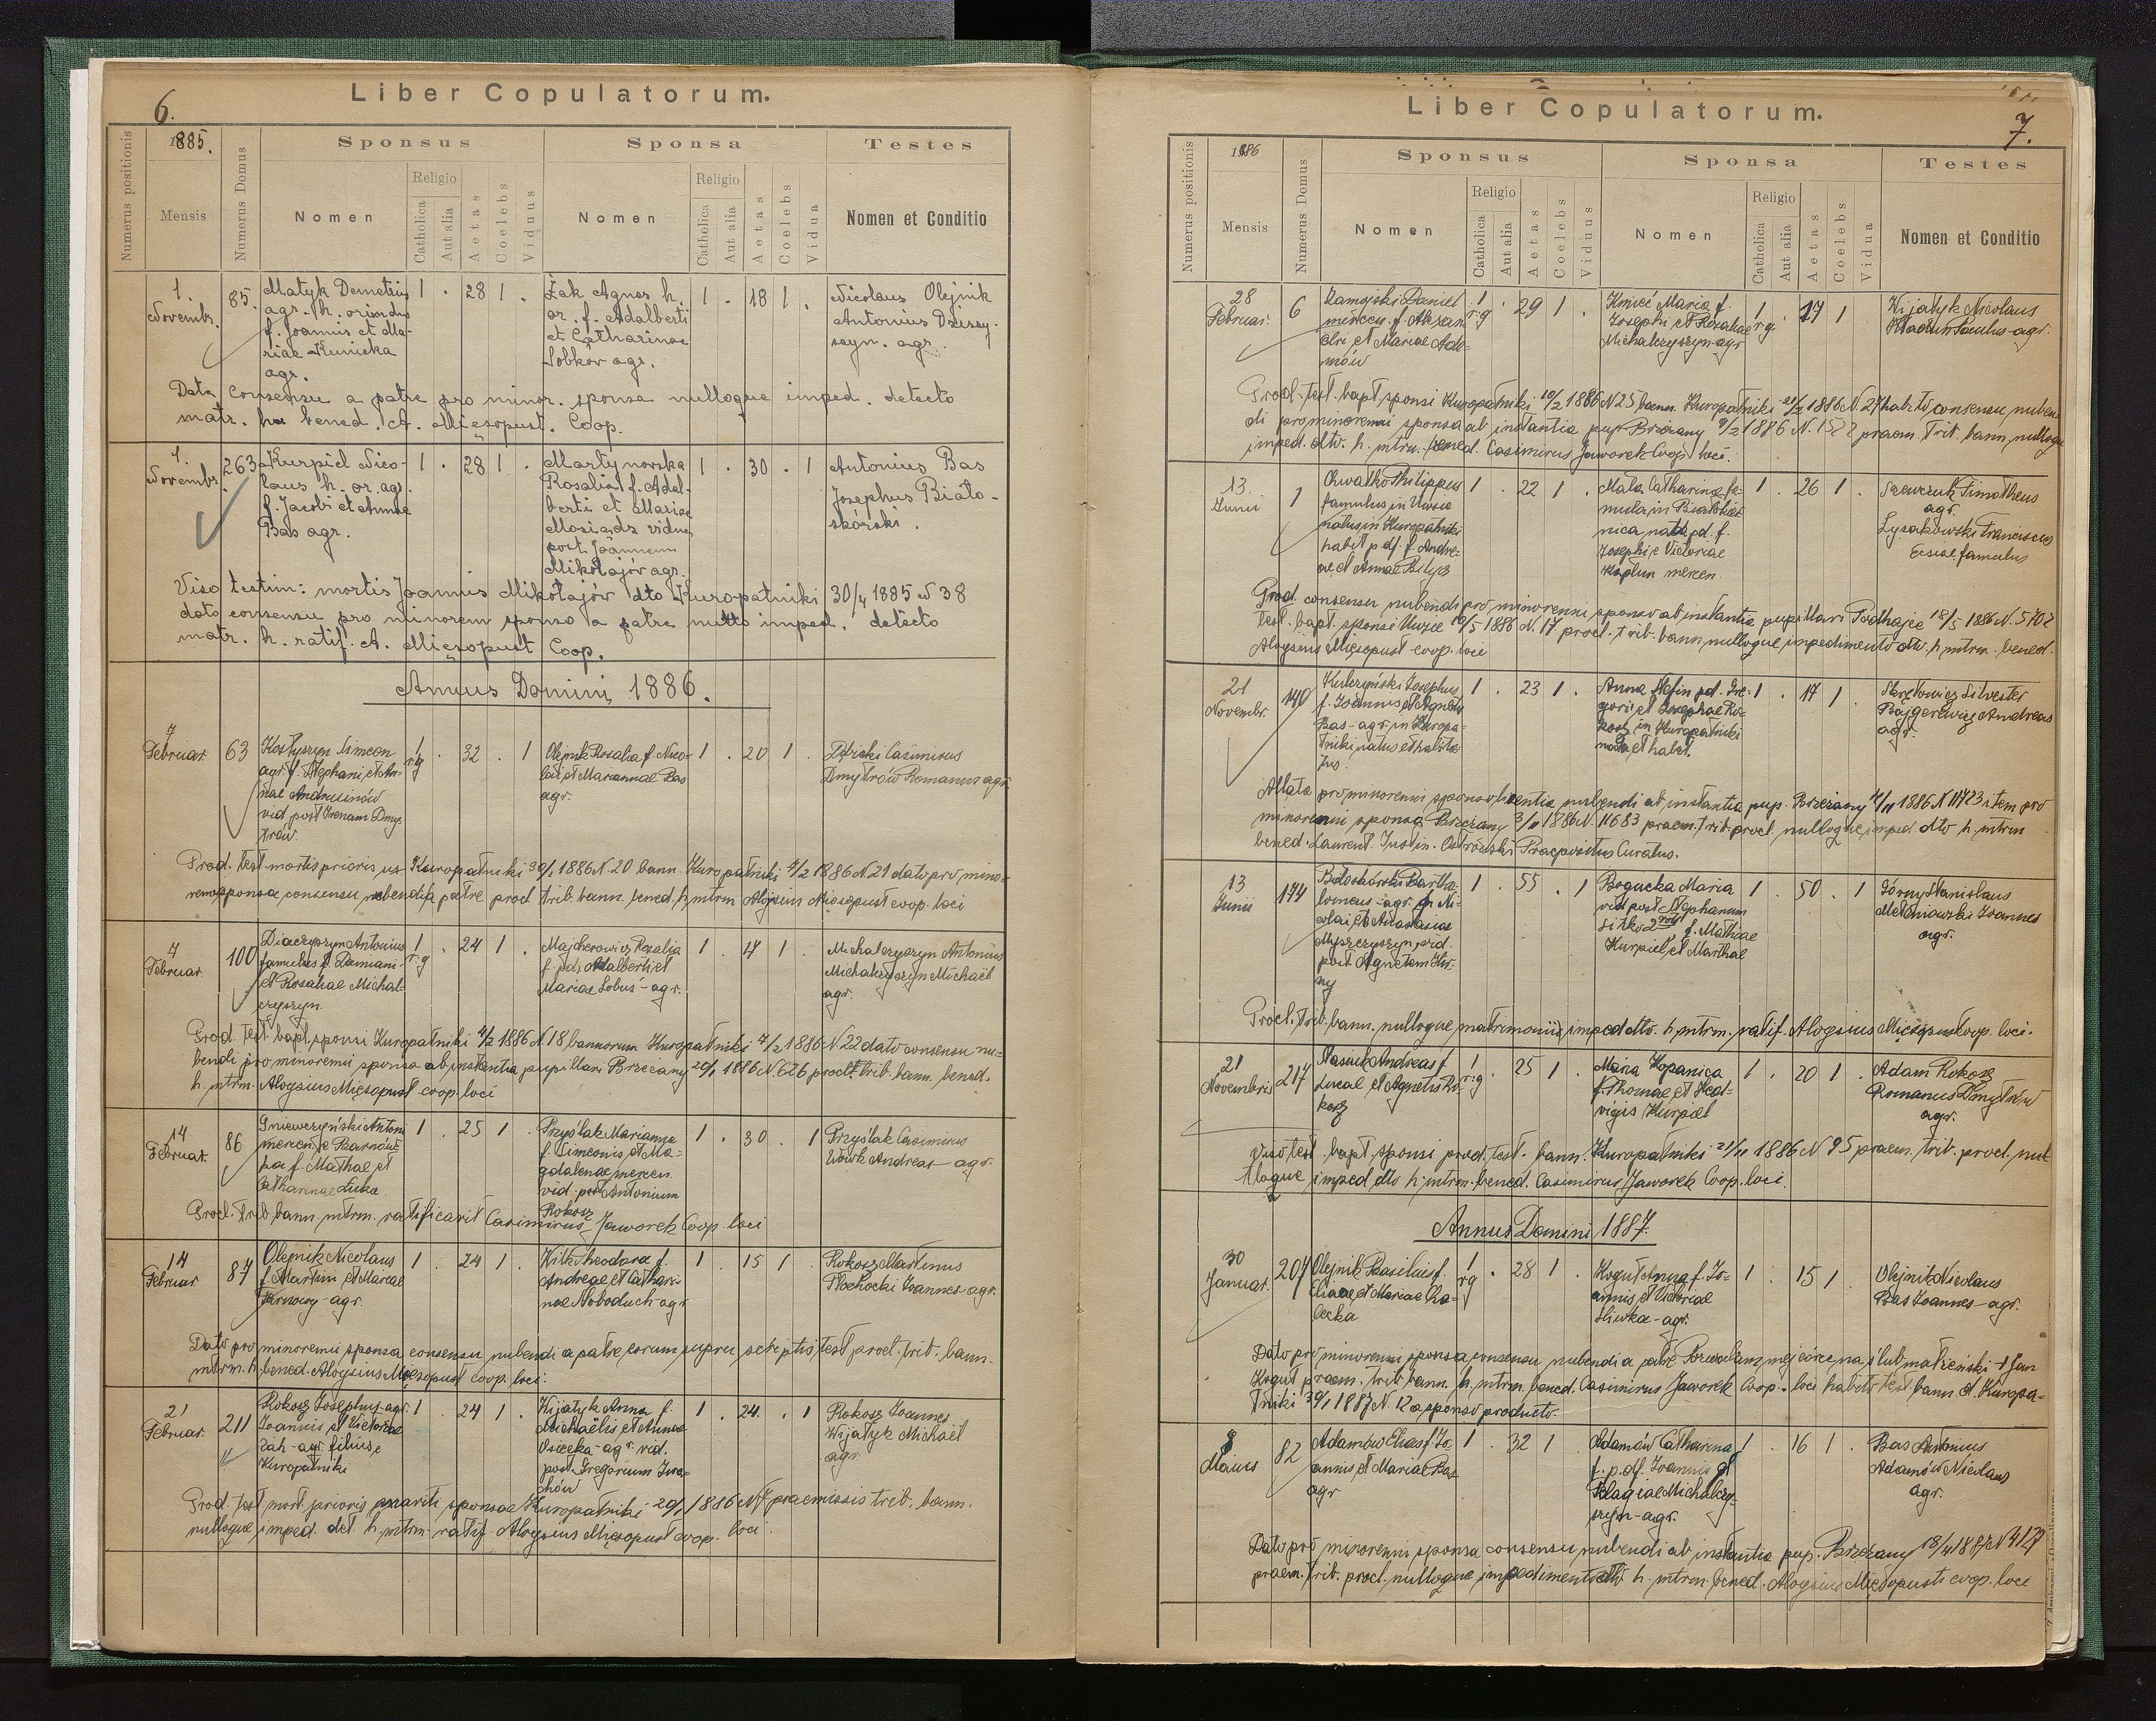 6.
Liber Copulatorum.
Numerus positionis
1885.
Mensis
Numerus Domus
Sponsus
Nomen
Religio
Catholica
Aut alia
Aetas
Coelebs
Viduus
Sponsa
Nomen
Religio
Catholica
Aut alia
Aetas
Coelebs
Vidua
Testes
Nomen et Conditio
1.
Novembr.
85.
Matyk Demetrius
agr. h. oriundus
f. Joannis et Ma-
riae Kunicka
agr.
1 . 28 1 .
Żak Agnes h.
or. f. Adalberti
et Catharinae
Sobków agr.
1 . 18 1 .
Nicolaus Olejnik
Antonius
agr.
Dato consensu a patre pro minor. sponsa nulloque imped. detecto
matr. h. bened. A. Mięsopust. Coop.
Novembr.
263
Kurpiel Nico-
laus h. or. agr.
f. Jacobi et Annae
Bas agr.
1 . 28 1 .
Martynowska
Rosalia f. Adal-
berti et Mariae
vidua
post Joannem
Mikołajów agr.
1 . 30 . 1
Antonius Bas
Josephus Biało-
skórski.
Viso testim: mortis Joannis Mikołajów dto Kuropatniki 30/4 1885 N 38
dato consensu pro minorem sponso a patre nullo imped. detecto
matr. h. ratif. A. Mięsopust Coop.
Annus Domini 1886.
7
Februar.
63
Kostyszyn Simeon
agr. f. Stephani et An-
nae Andrusinów
vid post Irenam Dmy-
trów
1 rg . 32 . 1
Olejnik Rosalia f. Nico-
lai et Mariannae Bas
agr.
1 . 20 1 .
Casimirus
Dmytrów Romanus agr.
Prod. test mortis prioris ux. Kuropatniki 30/1 1886 N. 20 bann. Kuropatniki 7/2 1886 N 21 dato pro mino-
renni sponsa consensu nubendi a patre procl trib. bann. bened. h. mtrm Aloysius Mięsopust coop. loci
7
Februar.
100
Diaczyszyn Antonius
famulus f. Damiani
et Rosaliae Michal-
czyszyn.
1 r.g . 24 1 .
Majcherowicz Rozalia
f. pdf Adalberti et
Mariae Sobus - agr.
1 . 17 1 .
Michalczyszyn Antonius
Michalczyszyn Michaël
agr.
Prod. test. bapt. sponsi Kuropatniki 4/2 1886 N. 18 bannorum Kuropatniki 7/2 1886 N 22 dato consensu nu-
bendi pro minorenni sponsa ab instantia pupillari Brzeżany 20/1 1886 N. 626 procl trib. bann. bened.
h. mtrm. Aloysius Mięsopust coop. loci
14
Februar.
86
Gniewczyński Antoni
mercen. f. Mathae et
Catharinae Łuka
1 . 25 1 .
Przyślak Marianna
f. Simeonis et Ma-
gdalenae mercen.
vid. post Antonium
Rokosz
1 . 30 . 1
Przyślak Casimirus
Wowk Andreas - agr.
Procl. trib. bann. mtrm. ratificavit Casimirus Jaworek Coop. loci
14
Februar.
87
Olejnik Nicolaus
f. Martini et Mariae
agr.
1 . 24 1 .
Wilk Theodora f.
Andreae et Cathari-
nae Noboduch agr
1 . 15 1 .
Rokosz Martinus
Płochocki Joannes agr.
Dato pro minorenni sponsa consensu nubendi a patre corum supra scriptis test procl. trib. bann.
mtrm. h. bened. Aloysius Mięsopust Coop. loci.
21
Februar.
211
Rokosz Josephus agr.
Joannis et Victoriae
Zah - agr. filius, e
Kuropatniki
1 . 24 1 .
Wijatyk Anna f.
Michaëlis et Annae
Osecka - agr. vid.
post. Gregorium Iwa-
chów
1 . 24. . 1
Rokosz Joannes
Wijatyk Michaël
agr.
Prod. test mort. prioris mariti sponsae Kuropatniki 20/1 1886 N 7 praemissis trib. bann.
nulloque imped. det. h. mtrm. ratif. Aloysius Mięsopust coop. loci.
7.
Liber Copulatorum.
Numerus positionis
1886
Mensis
Numerus Domus
Sponsus
Nomen
Religio
Catholica
Aut alia
Aetas
Coelebs
Viduus
Sponsa
Nomen
Religio
Catholica
Aut alia
Aetas
Coelebs
Vidua
Testes
Nomen et Conditio
28
Februar.
6
Zamojski Daniel
mercen. f. Alexan-
dri et Mariae Ada-
mów
1 r.g . 29 1 .
Kmieć Maria f.
Josephi et Rosaliae
Michalczyszyn agr
1 r.g. . 17 1
Wijatyk Nicolaus
Paulus - agr.
Prod. test. bapt. sponsi Kuropatniki 10/2 1886 N 25 bann. Kuropatniki 28/2 1886 N. 27 habito consensu nuben-
di pro minorenni sponsa ab instantia pup. Brzeżany 9/2 1886 N. 1522 praem. trib. bann. nulloque
imped. dto. h. mtrm. bened. Casimirus Jaworek Coop. loci.
13
Junii
1
Chwałko Philippus
famulus in
natus in Kuropatniki
habit pdf. f. Andre-
ae et Annae Bilyk
1 . 22 1 .
Mala Catharina fa-
mula in
nica nata pd. f.
Josephi e Victoriae
Kaplun mercen.
1 . 26 1 .
Szewczuk Timotheus
agr.
Łysakowski Franciscus
famulus
Prod. consensu nubendi pro minorenni sponso ab instantia pupillari Podhajce 18/5 1886 N. 5702
test. bapt. sponsi 10/5 1886 N. 17 procl. trib. bann. nulloque impedimento dto. h. mtrm. bened.
Aloysius Mięsopust coop. loci
21
Novembr.
140
Kulczyński Josephus
f. Joannis et Agnetis
Bas - agr. in Kuropa-
tniki natus et habita-
tus.
1 . 23 1 .
Anna pd. Gre-
gorii et Josephae Ro-
kosz in Kuropatniki
nata et habit.
1 . 17 1 .
Silvester
Bajgerowicz Andreas
agr.
Allata pro minorenni sponso licentia nubendi ab instantia pup. Brzeżany 4/11 1886 N 11723 item pro
minorenni sponsa Brzeżany 3/11 1886 N. 11683 praem. trib. procl. nulloque imped. dto h. mtrm
bened. Laurent. Justin. Ostrowski Praepositus Curatus.
13
Junii
174
Białoskórski Bartho-
lomeus - agr. f. Ni-
colai et Anastasiae
Myszczyszyn vid.
post Agnetem Hor-
ny
1 . 55 . 1
Bogucka Maria
vid post Stephanum
Sitko 2 voti f. Mathiae
Kurpiel et Marthae
1 . 50 . 1
Górny Stanislaus
Joannes
agr.
Procl. trib. bann. nulloque matrimonii imped dto. h. mtrm. ratif. Aloysius Mięsopust coop. loci.
21
Novembris
217
Pasiuk Andreas f
Lucae et Agnetis Ro-
kosz
1 r.g . 25 1 .
Maria Kopanica
f. Thomae et Hed-
vigis Kurpiel
1 . 20 1 .
Adam Rokosz
Romanus Dmytrów
agr.
Viso test. bapt. sponsi prod. test. bann. Kuropatniki 21/11 1886 N 95 praem. trib. procl. nul-
loque imped dto h. mtrm. bened. Casimirus Jaworek Coop. loci.
Annus Domini 1887.
30
Januar.
207
Olejnik Basilius f.
Eliae et Mariae Ra-
lecka
1 rg . 28 1 .
Kogut Anna f. Jo-
annis et Victoriae
Sliwka - agr.
1 . 15 1 .
Olejnik Nicolaus
Bas Joannes - agr.
Dato pro minorenni sponsa consensu nubendi a patre Pozwalam mej córce na ślub małżeński + Jan
Kogut praem. trib. bann. h. mtrm. bened. Casimirus Jaworek Coop. loci habito test. bann. d. Kuropa-
tniki 30/1 1887 N. 12 a sponso producto.
8
Maius
82
Adamów Elias f. Jo-
annis et Mariae Bas
agr
1 . 32 1 .
Adamów Catharina
f. p.df. Joannis et
Pelagiae Michalczy-
szyn - agr.
1 . 16 1 .
Bas Antonius
Adamów Nicolaus
agr.
Dato pro minorenni sponsa consensu nubendi ab instantia pup. Brzeżany 18/4 1887 N 4127
praem. trib. procl. nulloque impedimento dto h. mtrm. bened. Aloysius Mięsopust coop. loci